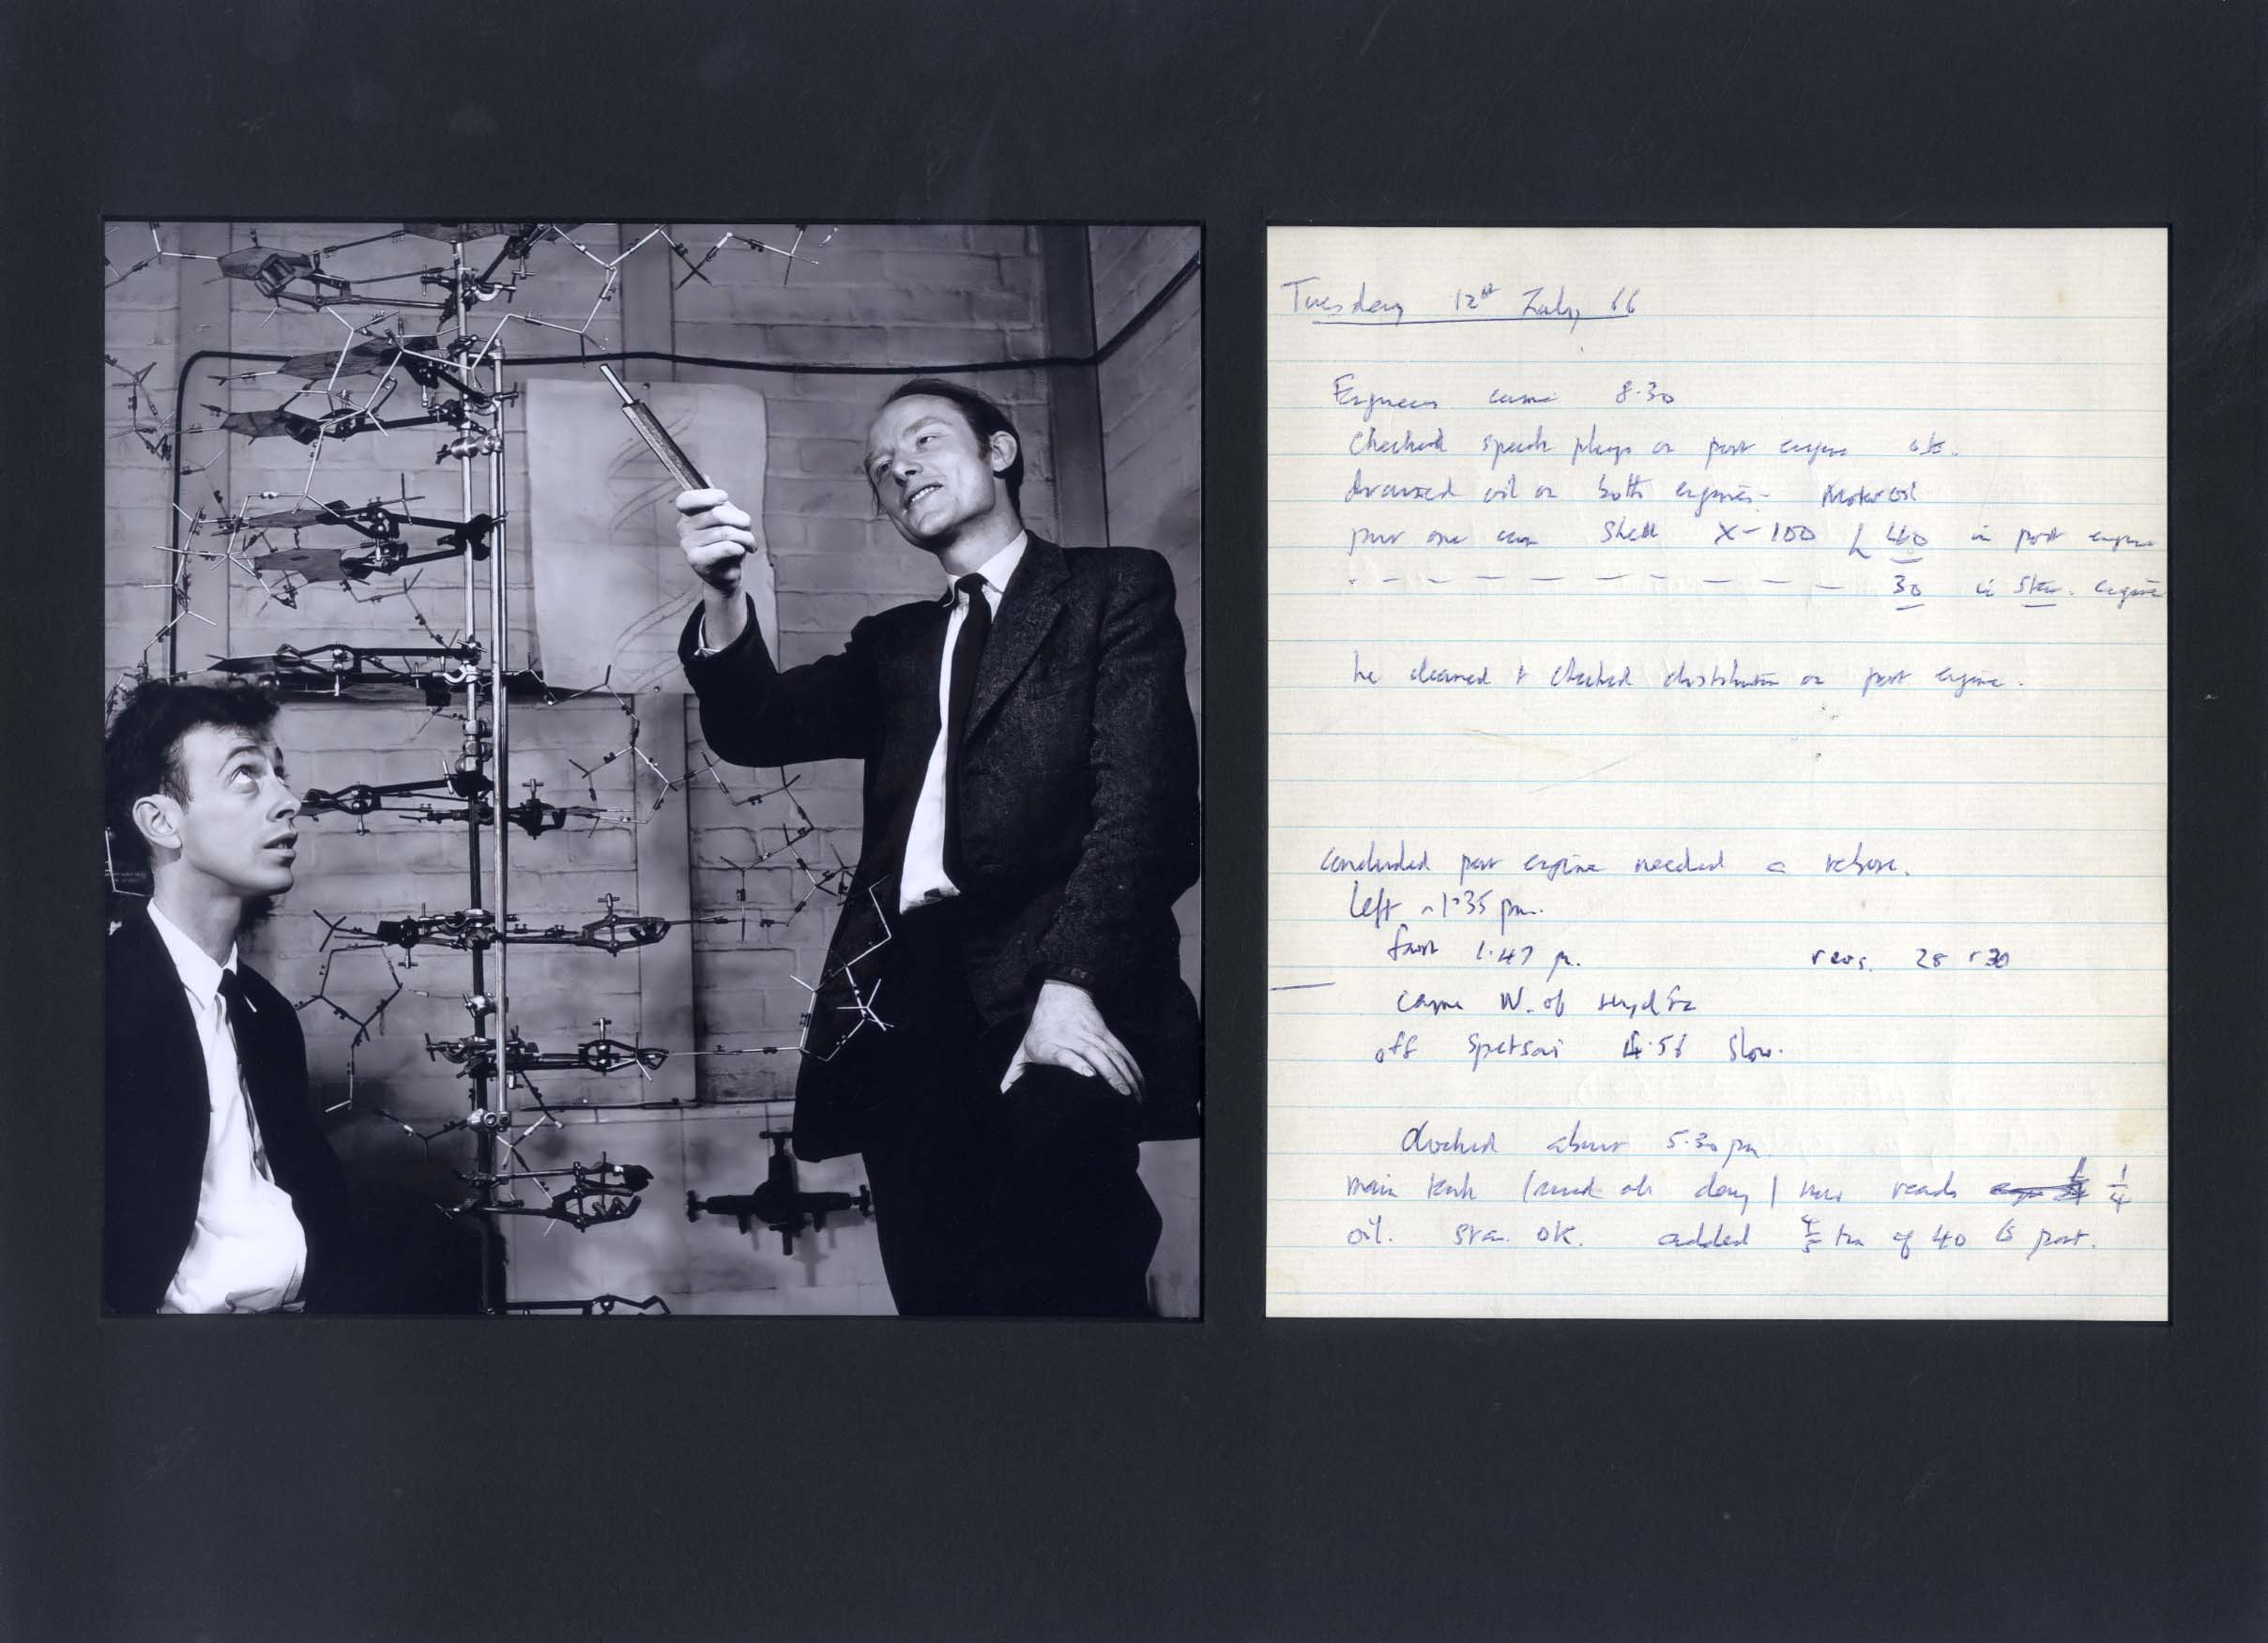 Tuesday 12th July, 66
Engineer came 8.30
Checked spark plugs on port engine ok.
drained oil on both engines. Motor oil
put one can Shell X-100 40 in port engine
. – – – – – – – – – 30 in star. engine
he cleaned + checked distributor on port engine.
concluded port engine needed a rebore.
Left ~1.35 pm.
from 1.47 p. revs. 28 30
came W. of Hydra
off Spetsai 4.56 slow.
docked about 5.30 pm.
main tank (used all day) now reads 1/4
oil. star. OK. added 4/5 tin of 40 to port.